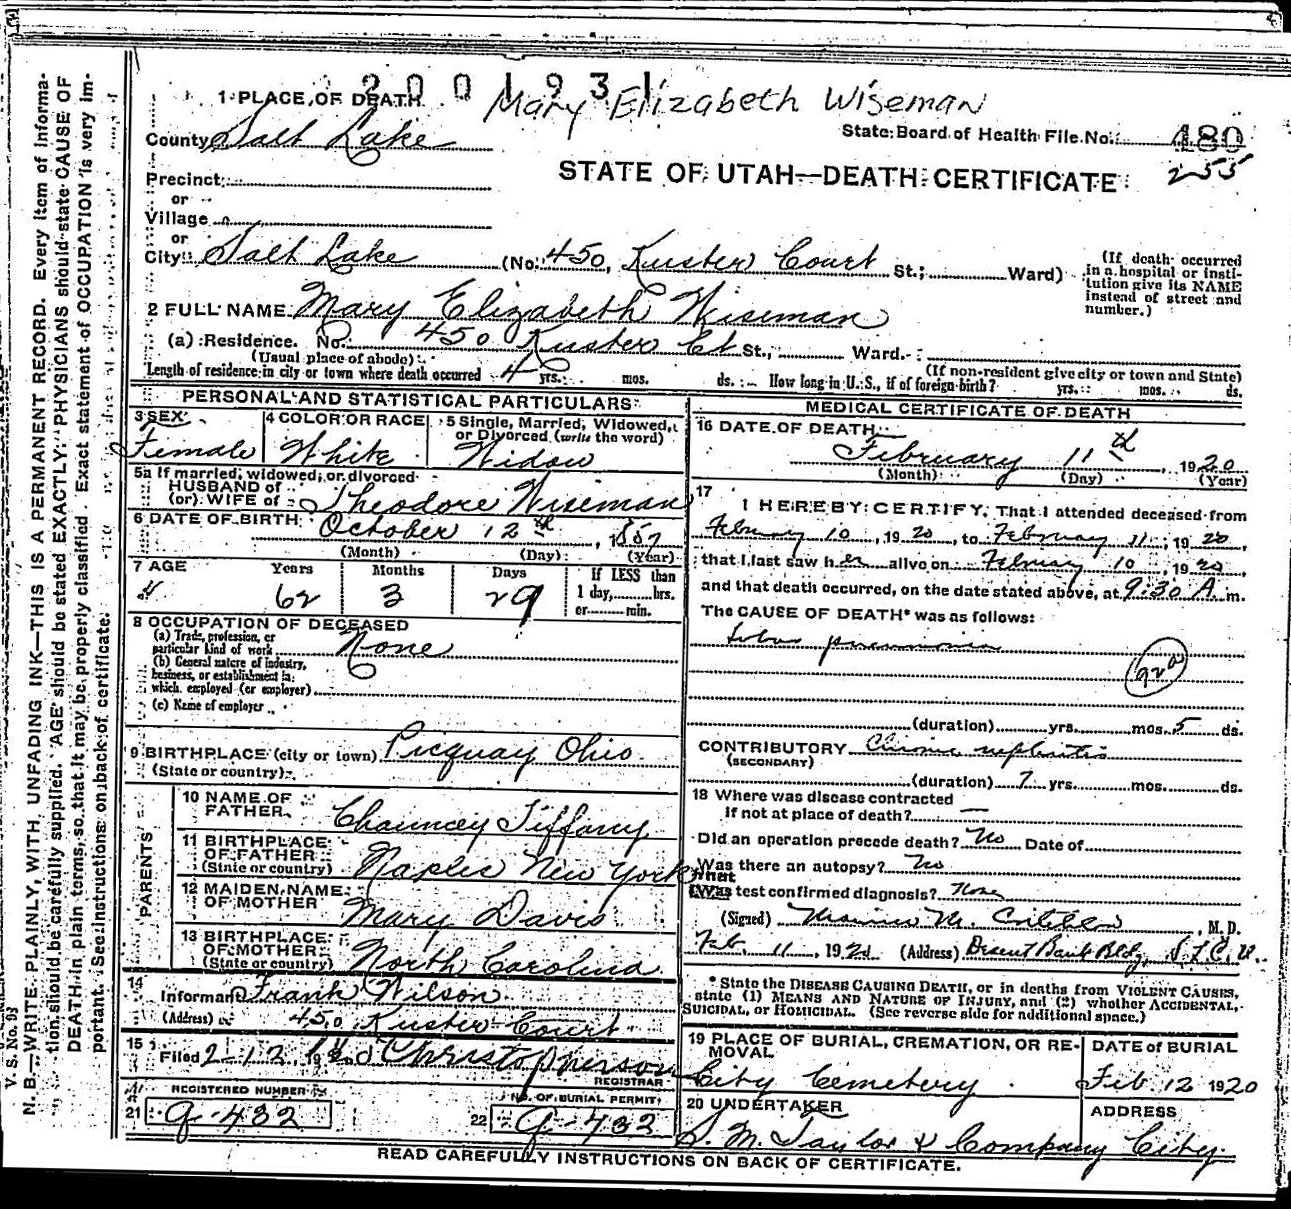 2001931
Mary Elizabeth Wiseman
1 PLACE OF DEATH
State Board of Health File No. 480
County Salt Lake
255
STATE OF UTAH—DEATH CERTIFICATE
Precinct
or
Village
or
City Salt Lake (No. 450, Kuster Court St.; Ward)
(If death occurred in a hospital or insti-
tution give its NAME
instead of street and
number.)
2 FULL NAME Mary Elizabeth Wiseman
(a) Residence. No. 450 Kuster Ct St., Ward.
(Usual place of abode) (If non-resident give city or town and State)
Length of residence in city or town where death occurred 4 yrs. mos. ds. How long in U. S., if of foreign birth? yrs. mos. ds.
PERSONAL AND STATISTICAL PARTICULARS
3 SEX
Female
4 COLOR OR RACE
White
5 Single, Married, Widowed,
or Divorced (write the word)
Widow
5a If married, widowed, or divorced
HUSBAND of
(or) WIFE of Theodore Wiseman
6 DATE OF BIRTH October 12th, 1857
(Month) (Day) (Year)
7 AGE Years Months Days If LESS than
62 3 29 1 day, hrs.
or min.
8 OCCUPATION OF DECEASED
(a) Trade, profession, or
particular kind of work None
(b) General nature of industry,
business, or establishment in
which employed (or employer)
(c) Name of employer
9 BIRTHPLACE (city or town) Picquay Ohio
(State or country)
PARENTS
10 NAME OF
FATHER Chauncey Tiffany
11 BIRTHPLACE
OF FATHER
(State or country) Naples New York
12 MAIDEN NAME
OF MOTHER Mary Davis
13 BIRTHPLACE
OF MOTHER
(State or country) North Carolina
14
Informant Frank Wilson
(Address) 450 Kuster Court
15
Filed 2-12 Christopherson
REGISTRAR
REGISTERED NUMBER
21 9-432
NO. OF BURIAL PERMIT
22 9-432
MEDICAL CERTIFICATE OF DEATH
16 DATE OF DEATH
February 11th, 1920
(Month) (Day) (Year)
17
I HEREBY CERTIFY, That I attended deceased from
February 10, 1920, to February 11, 1920,
that I last saw her alive on February 10, 1920
and that death occurred, on the date stated above, at 9:30 A. m.
The CAUSE OF DEATH* was as follows:
Lobar pneumonia
92a
(duration) yrs. mos. 5 ds.
CONTRIBUTORY Chronic nephritis
(SECONDARY)
(duration) 7 yrs. mos. ds.
18 Where was disease contracted
if not at place of death? —
Did an operation precede death? No Date of
Was there an autopsy? No
What test confirmed diagnosis? None
(Signed) M. , M. D.
Feb. 11, 1920 (Address) Bank Bldg, S.L.C. U.
* State the DISEASE CAUSING DEATH, or in deaths from VIOLENT CAUSES,
state (1) MEANS AND NATURE OF INJURY, and (2) whether ACCIDENTAL,
SUICIDAL, or HOMICIDAL. (See reverse side for additional space.)
19 PLACE OF BURIAL, CREMATION, OR RE-
MOVAL
City Cemetery
DATE of BURIAL
Feb. 12 1920
20 UNDERTAKER
S. M. Taylor & Company
ADDRESS
City.
READ CAREFULLY INSTRUCTIONS ON BACK OF CERTIFICATE.
V. S. No. 93
N. B.—WRITE PLAINLY, WITH UNFADING INK—THIS IS A PERMANENT RECORD. Every item of informa-
tion should be carefully supplied. AGE should be stated EXACTLY. PHYSICIANS should state CAUSE OF
DEATH in plain terms, so that it may be properly classified. Exact statement of OCCUPATION is very im-
portant. See instructions on back of certificate.